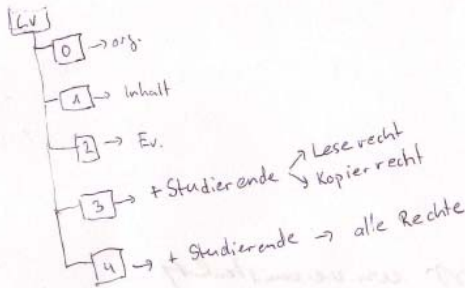 LV
0 → org.
1 → Inhalt
2 → Ev.
3 → + Studierende ↗ Leserecht
↘ Kopierrecht
4 → + Studierende → alle Rechte